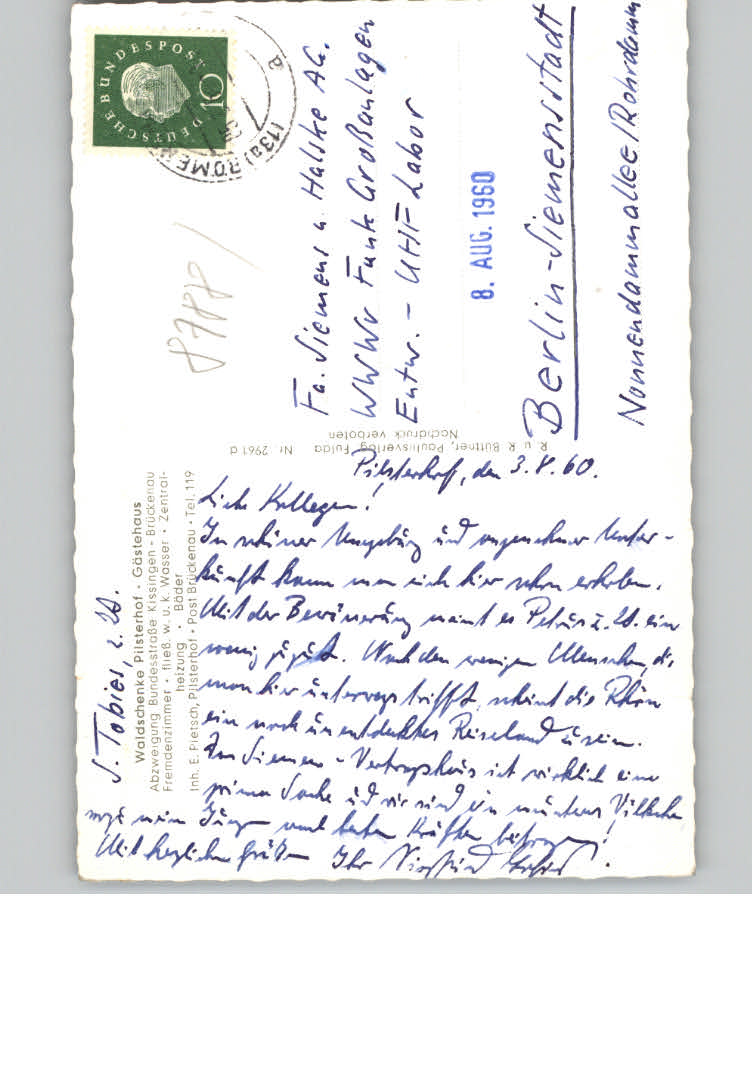 S. Tobies, z. Zt.
Waldschenke Pilsterhof · Gästehaus
Abzweigung Bundesstraße Kissingen - Brückenau
Fremdenzimmer · fließ. w. u. k. Wasser · Zentral-
heizung · Bäder
Inh. E. Pietsch, Pilsterhof · Post Brückenau · Tel. 119
Pilsterhof, den 3.8.60.
Liebe Kollegen!
In schöner Umgebung und angenehmer Unter-
kunft kann man sich hier schon erholen.
Mit der Bewässerung meint es Petrus z. Zt. ein
wenig zu gut. Nach den wenigen Menschen, die
man hier unterwegs trifft, scheint die Rhön
ein noch unentdecktes Reiseland zu sein.
Das Siemens-Vertragshaus ist wirklich eine
prima Sache und wir sind ein munteres Völkchen
wozu mein Junge nach besten Kräften beiträgt!
Mit herzlichen Grüßen Ihr Siegfried
R. u. R. Büttner, Paulinusverlag, Fulda Nr. 2961 d
Nachdruck verboten
DEUTSCHE BUNDESPOST
10
(13a) RÖMER
a
8788/
Fa. Siemens u. Halske AG.
WWWv Funk Großanlagen
Entw. - UHF Labor
8. AUG. 1960
Berlin-Siemensstadt
Nonnendammallee/Rohrdamm